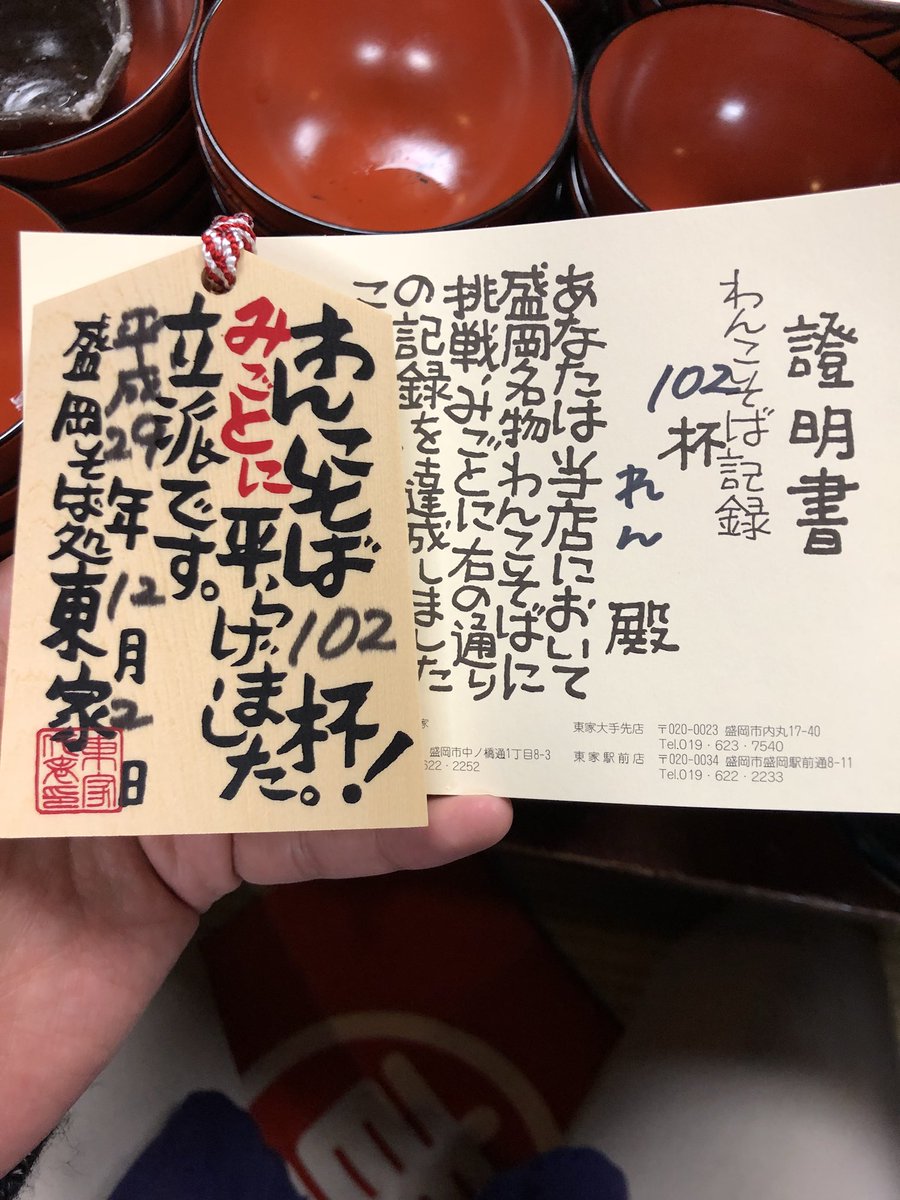 證明書
わんこそば記録
102杯
れん 殿
あなたは当店において
盛岡名物わんこそばに
挑戦、みごとに右の通り
の記録を達成しました
こ
東家大手先店 〒020-0023 盛岡市内丸17-40
Tel.019・623・7540
東家駅前店 〒020-0034 盛岡市盛岡駅前通8-11
Tel.019・622・2233
家
盛岡市中ノ橋通1丁目8-3
622・2252
わんこそば102杯!
みごとに平らげました。
立派です。
平成29年12月2日
盛岡そば処東家